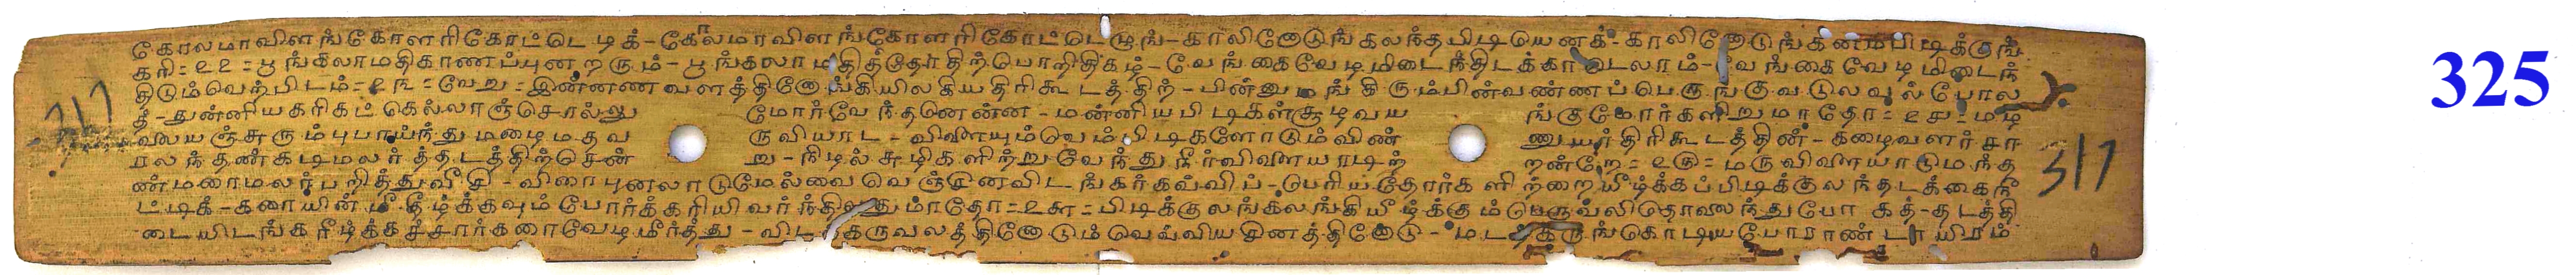 கோலமாவிளங்கோளரிகோட்டெடிக் - கோலமாவிளங்கோளரிகோட்டெழூங் - காலினோடுங்கலந்தபிடியுயனக் - காலினோடுங்கினம்பிடிக்குங்
கரி = ௨௨ = பூங்கலாமதிகாணப்புனறரும் - பூங்கலாமதித்தோதிற்பொறிதிகழ் - வேங்கைவேடிமிடைந்திடக்கா டெலாம் - வேங்கைவேடிமிடைந்
திடும்வெற்பிடம் = ௨௩ = வேறு = இன்னணவளத்தினோங்கியிலகியதிரிகூடத்திற் - பின்னு மங்கிரும்பின்வண்ணப்பெருங்குவடுலவுல்போல
தீ - துன்னியகரிகட்கெல்லாஞ்சொல்லு மோர்வேந்தனென்ன - மன்னியபிடிகள்சூழவய ங்குமோர்களிறுமாதோ = ௨௪ = மழ
வலயஞ்சுரும்புபாய்ந்துமழைமதவ ருவியாட - விளையும்வெம்பிடிகளோடும்விண் ணுயர்திரிகூடத்தின் - கழைவளர்சா
ரலந்தண்கடிமலர்த்தடத்திற்சென் று - நிழல்சுழிகளிற்றுவேந்துநீர்விளையாடிற் றன்றே = ௨௫ = மருவிளையாடுமந்த
ண்மரைமலர்பறித்துவீசி - விரைபுனலாடுமேல்வைவெஞ்சினவிடங்கர்கவ்விப் - பெரியதோர்களிற்றையீழ்க்கப்பிடிக்குலந்தடக்கைநீ
ட்டிக் - கரையின்மீதீழ்க்கவும்போர்க்கரியிவர்ந்தி துமாதோ = ௨௬ = பிடிக்குலங்கலங்கியீழ்க்கும் தொலைந்துபோ கத் - தடத்தி
டையிடங்கரீழ்க்கச்சார்கரைவேழமீர்த்து - விட கருவலத்தினோடும்வெவ்வியசினத்தினோடு - மடங்கருங்கொடியபோராண்டாயிரம்
317
317
325